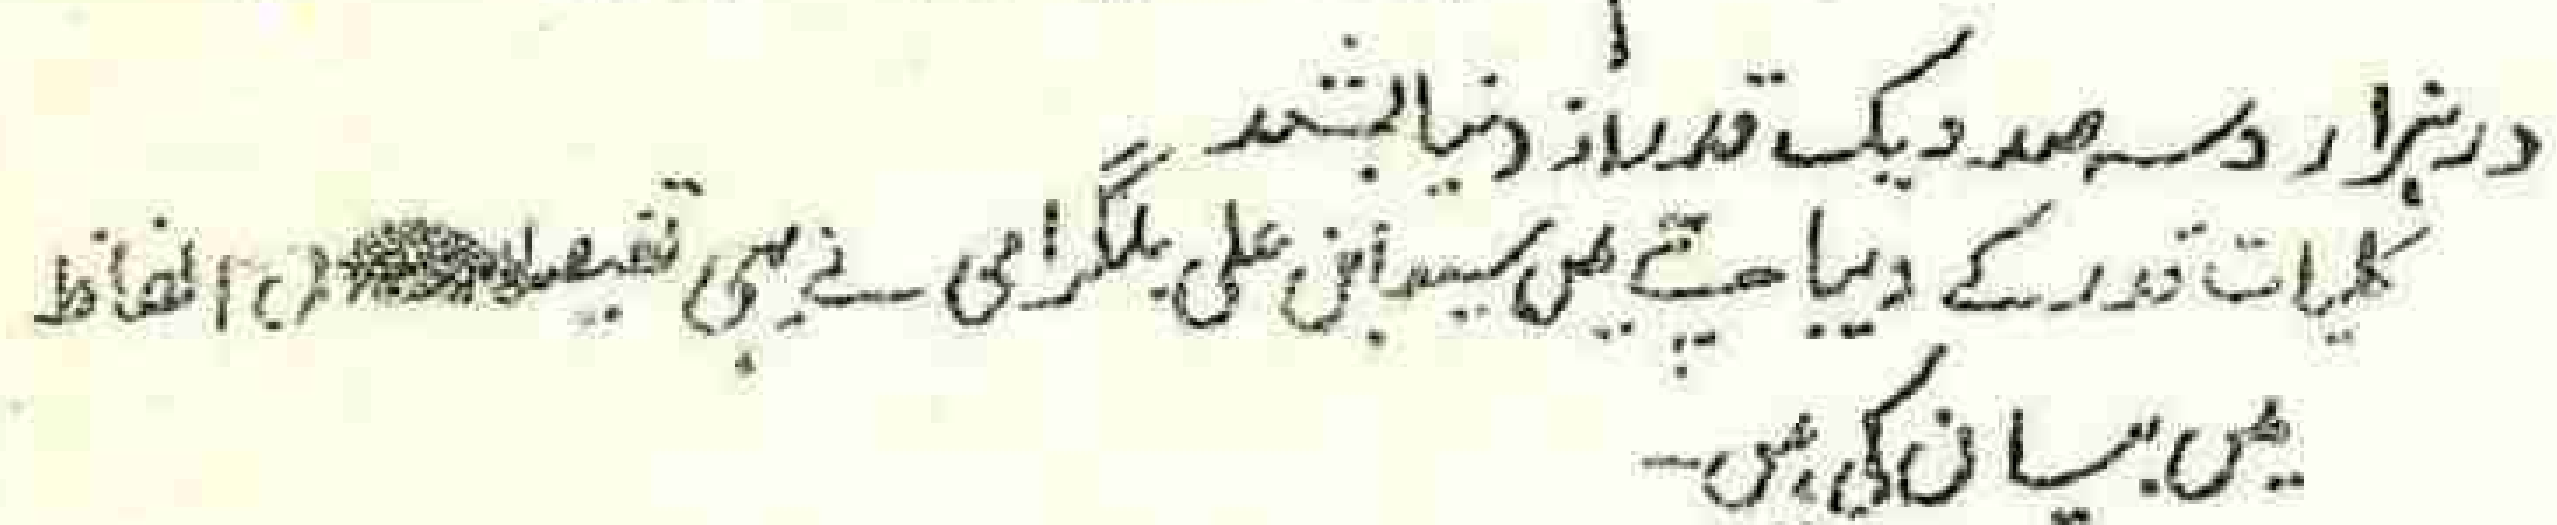 در ہزار و سہ صد و یک قدر از دنیا بشد
کلیات قدر کے دیباچے میں سید ابن علی بلگرامی نے بھی تفصیل ان الفاظ
میں بیان کی ہیں۔